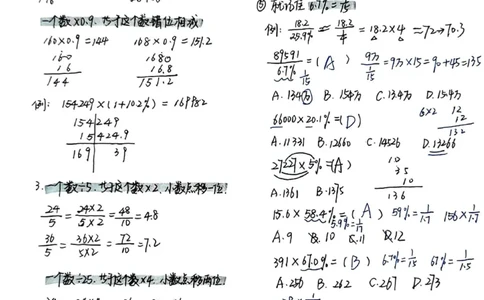 一个数×0.9,等于这个数错位相减
160×0.9=144  168×0.9=151.2
160  1680
16  16.8
144  151.2
例: 154249×(1+10.2%)=169982
154249
15424.9
169 39
3. 一个数÷5,等于这个数×2,小数点移一位
24/5=24×2/5×2=48/10=4.8
36/5=36×2/5×2=72/10=7.2
一个数÷25,等于这个数×4,小数点移两位
例: 18.2/25.9%≈18.2/¼=18.2×4≈72→70.3
89591/6.7%=(A)  9万/(1/15)=9万×15=90+45=135
A. 134万 B. 154万 C. 13.4万 D. 15.4万
66000×20.1%=(D)
6×2 12
12
132
A. 11331 B. 12660 C. 14526 D. 13266
27227×5%=(A)
10
35
10
136
A. 1361 B. 1375
15.6×58.4%=(A) 59%=1/1.7 156×1/17
5.9%=1/17
A. 9 B. 10 C. 11 D. 12
391×67.0%=(B) 6.7%=1/15 67%=1/1.5
A. 256 B. 262 C. 267 D. 273